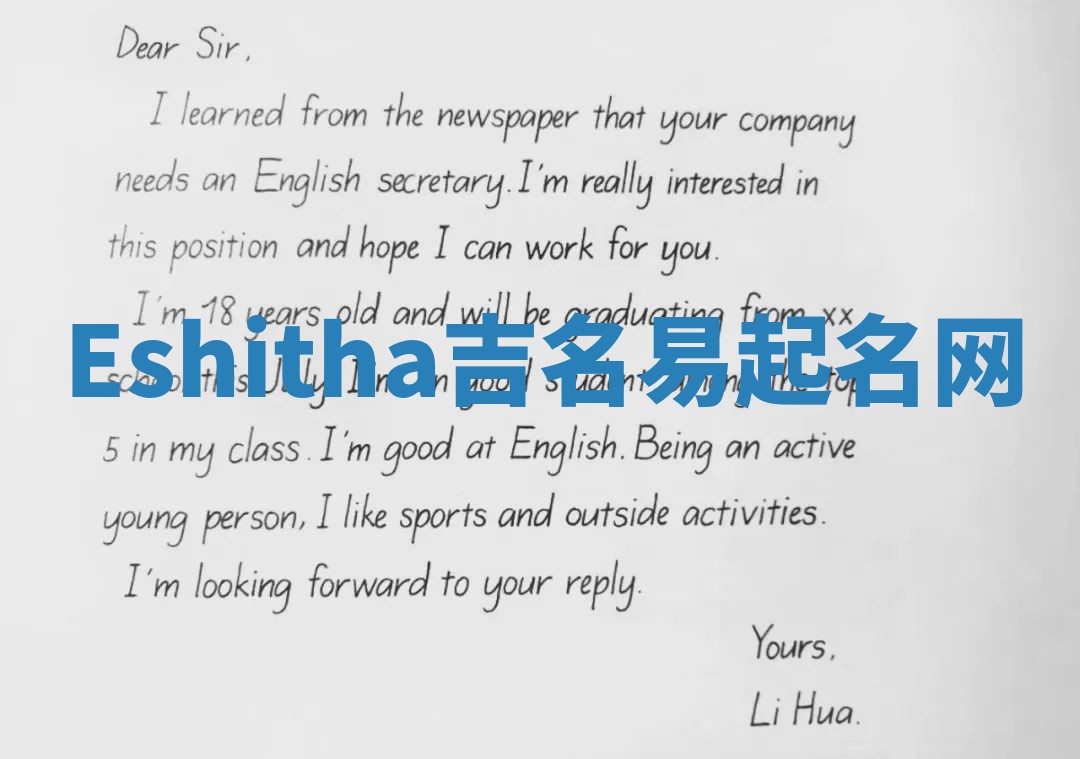 Dear Sir,
I learned from the newspaper that your company
needs an English secretary. I'm really interested in
this position and hope I can work for you.
I'm 18 years old and will be graduating from xx
Eshitha吉名易起名网
school this July. I'm a good student among the top
5 in my class. I'm good at English. Being an active
young person, I like sports and outside activities.
I'm looking forward to your reply.
Yours,
Li Hua.